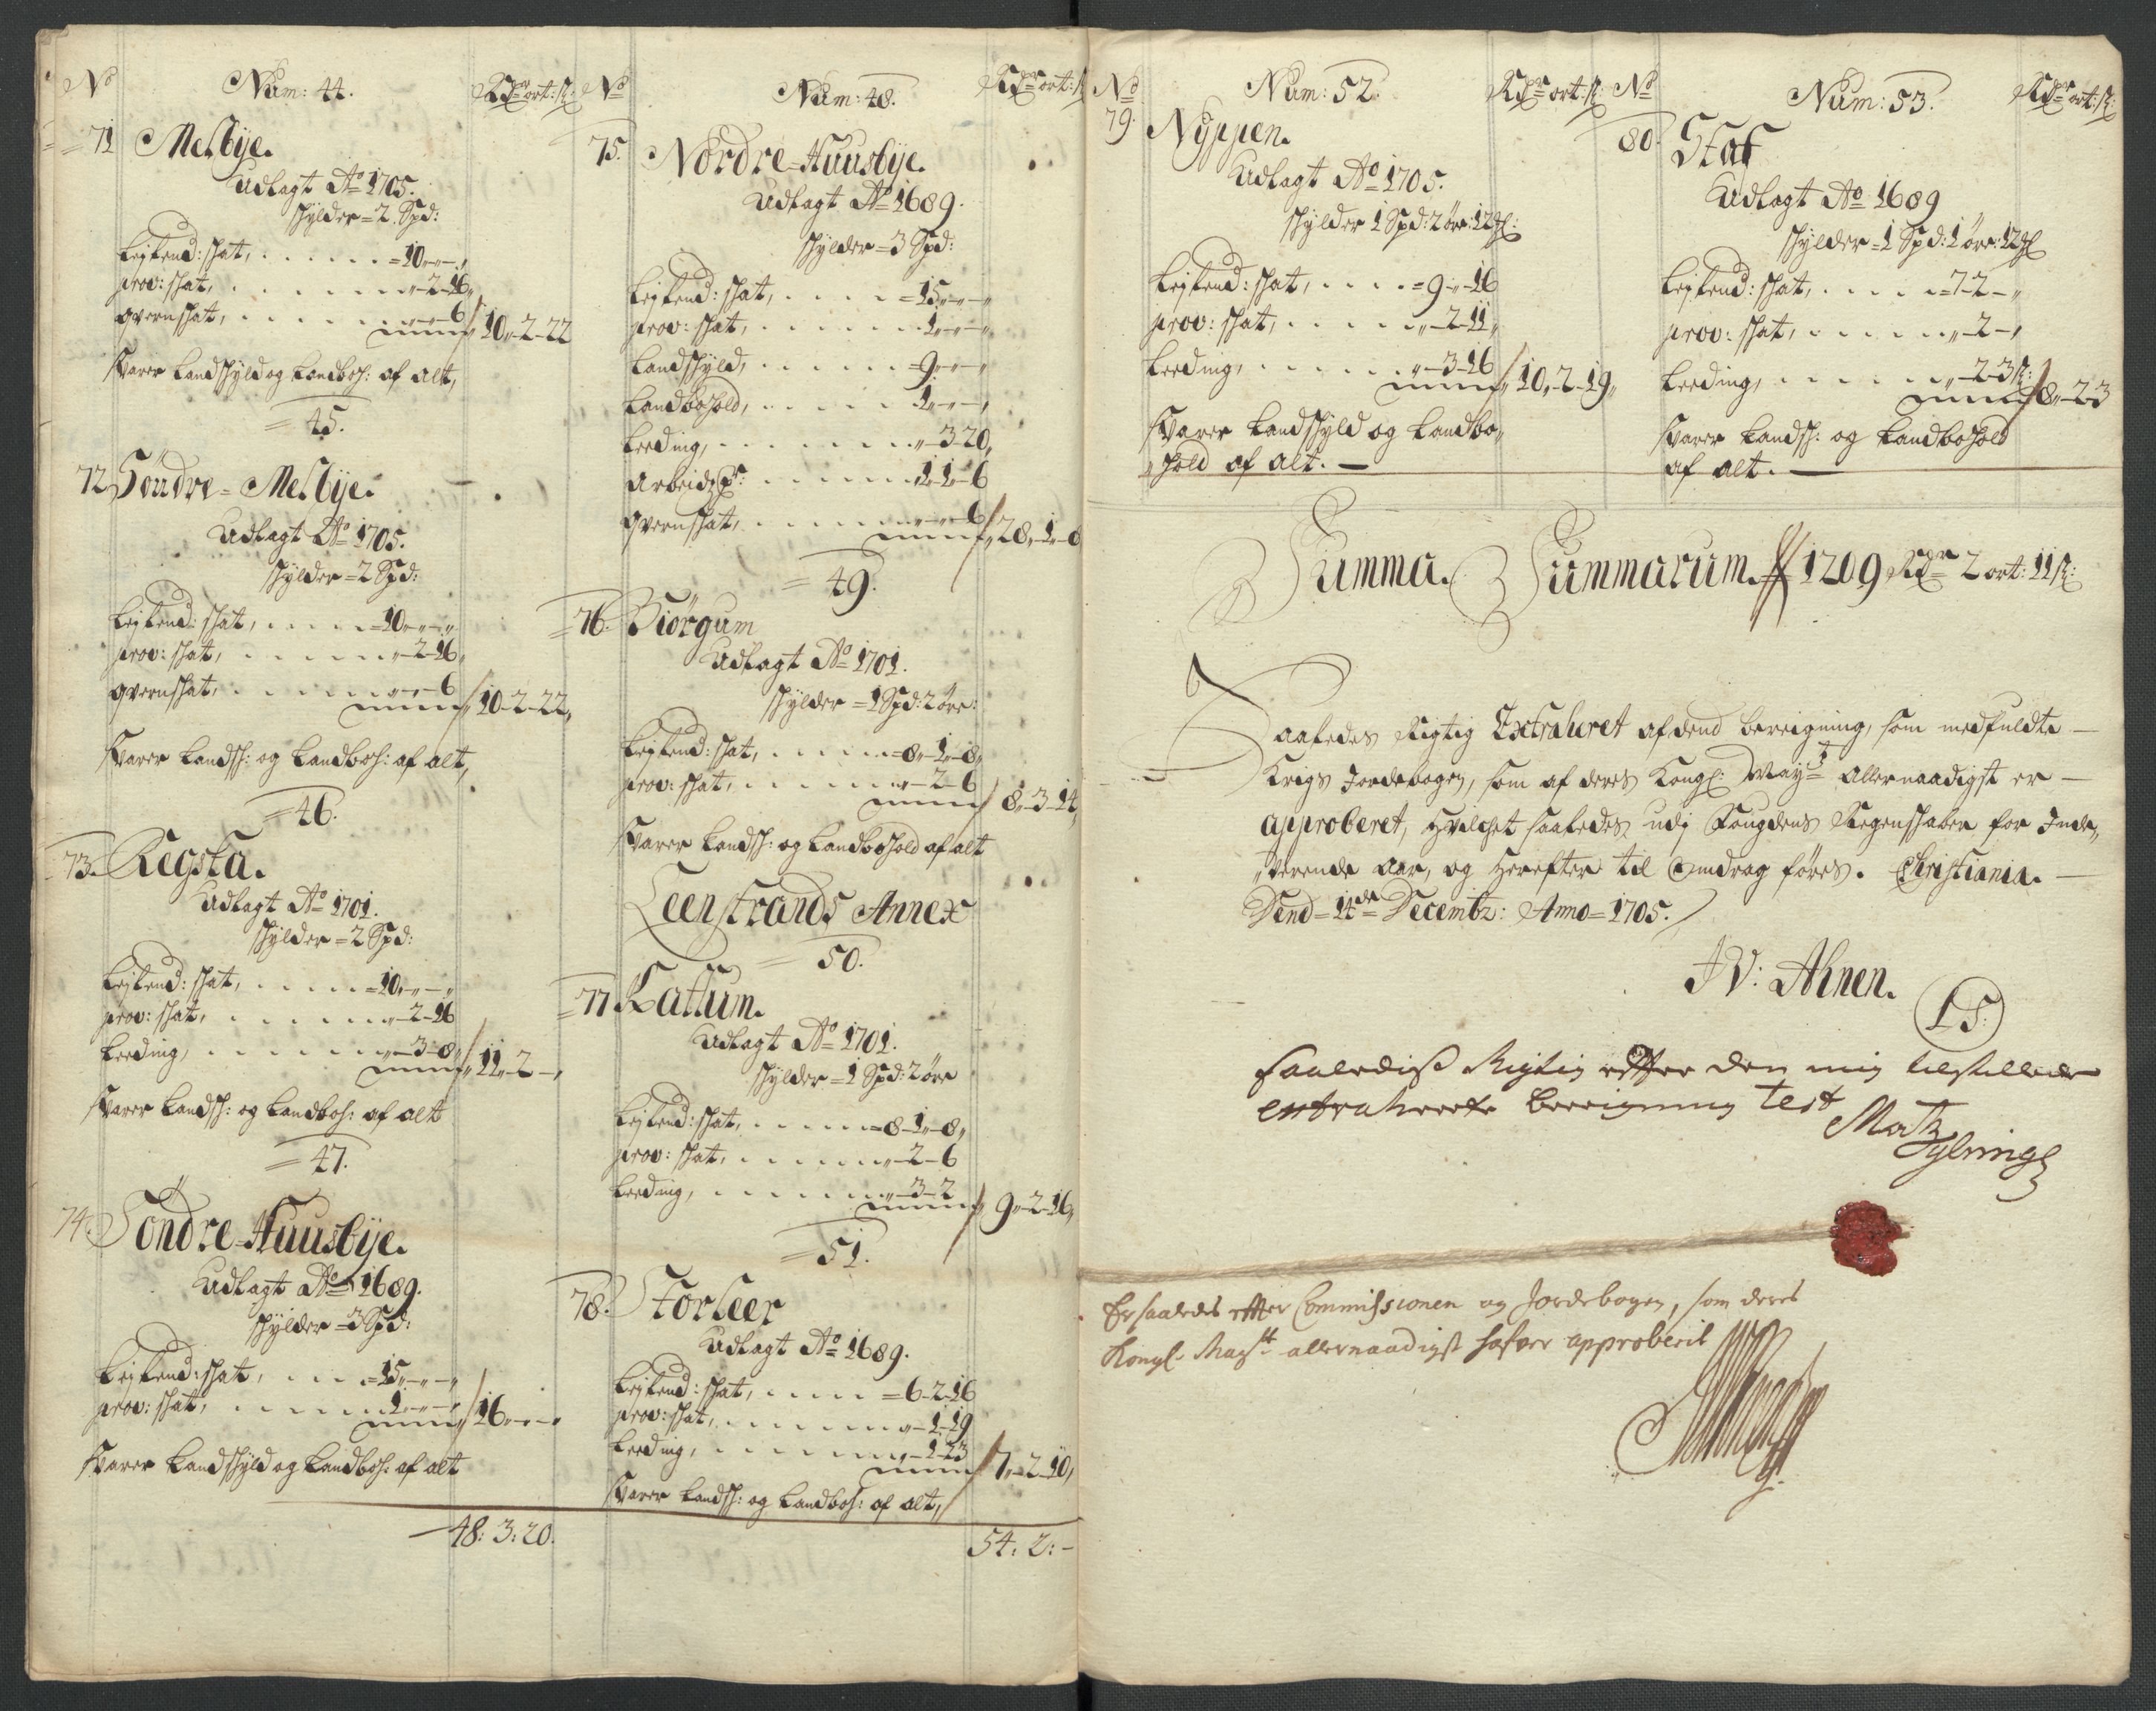 No Num: 44. Rdr ort: ß:
71 Melbÿe.
Udlagt Ao 1705.
schÿlder = 2 Spd:
Lejlend: schat, . . . . . = 10„-„-„
prov: schat, . . . . . „-2-16„
qvernschat, . . . . . „-„-6
10„-2-22
svarer Landschÿld og Landboh: af alt,
= 45.
72 Söndre = Melbÿe.
Udlagt Ao 1705.
schÿlder = 2 Spd:
Lejlend: schat, . . . . = 10„-„-„
prov: schat, . . . . „-2-16„
qvernschat, . . . . „-„-6
10-2-22„
svarer Landsch: og Landboh: af alt,
= 46.
73. Regsta.
Udlagt Ao 1701.
schÿlder = 2 Spd:
Lejlend: schat, . . . . = 10„-„-„
prov: schat, . . . . „-2-16
Leeding, . . . . „-3-8„
11„-2-„
svarer Landsch: og Landboh: af alt
= 47.
74. Söndre-Huusbÿe.
Udlagt Ao 1689.
schÿlder = 3 Spd:
Lejlend: schat, . . . = 15„-„-„
prov: schat, . . . . 1„-„-„
16„-„-„
svarer Landschÿld og Landboh: af alt
48: 3: 20.
No Num: 48. Rdr ort: ß
75. Nordre-Huusbÿe.
Udlagt Ao 1689.
schÿlder = 3 Spd:
Lejlend: schat, . . . . = 15„-„-„
prov: schat, . . . . . 1„-„-„
Landschÿld, . . . . . = 9„-„-„
Landbohold, . . . . . 1„-„-„
Leeding, . . . . . „-3-20„
Arbeidsp: . . . . . 1„1„-6
qvernschat, . . . . . „-„-6
28„-1-8
= 49.
76. Biörgum
Udlagt Ao 1701.
schÿlder = 1 Spd: 2 öre:
Lejlend: schat, . . . . = 8„-1„-8„
prov: schat, . . . . „-2-6
8„-3-14„
svarer Landsch: og Landbohold af alt
Leenstrands Annex
= 50.
77 Kattum.
Udlagt Ao 1701.
schÿlder = 1 Spd: 2 öre
Lejlend: schat, . . . . = 8-1„-8„
prov: schat, . . . . „-2-6
Leeding, . . . . „-3-2
9„-2-16„
= 51.
78. Storleer
Udlagt Ao 1689.
Lejlend: schat, . . . . = 6-2-16
prov: schat, . . . . „-1-19
Leeding, . . . . „-1-23
7„-2-10„
svarer Landsch: og Landboh: af alt,
54: 2:-
No Num: 52. Rdr ort: ß:
79. Nÿppen.
Udlagt Ao 1705.
schÿlder 1 Spd: 2 öre: 12 schl:
Lejlend: schat, . . . . = 9-„-16
prov: schat, . . . . „-2-11„
Leeding, . . . . „-3-16
10„-2-19„
svarer Landschÿld og Landbo„
„hold af alt. —
No Num: 53. Rdr ort: ß:
80. Staf
Udlagt Ao 1689
schÿlder = 1 Spd: 1 öre: 12 schl
Lejlend: schat, . . . . = 7-2-„
prov: schat, . . . . „-2-„
Leeding, . . . . „-2-3 ß:
8„-2-3
svarer Landsch: og Landbohold
af alt. —
Summa. Summarum. 1209 Rdr 2 ort: 11 ß:
Saaledes Rigtig Extraheret af dend bereigning, som medfulte —
Krigs Jordebogen, som af deres Kongl: Mayt allernaadigst er —
approberet, hvilchet saaledes udj Fougdens Regenschaber for Inde„
„verende aar, og herefter til Omdrag föres. Christiania. —
Dend = 14de Decembr: Anno = 1705.
JV: Ahnen.
LS:
saaledis Rigtig effter den mig tilstillede
extraherete bereigning Test
Er saaledes effter Commissionen og Jordebogen, som deres
Kongl. Mayst: allernaadigst hafver approberit